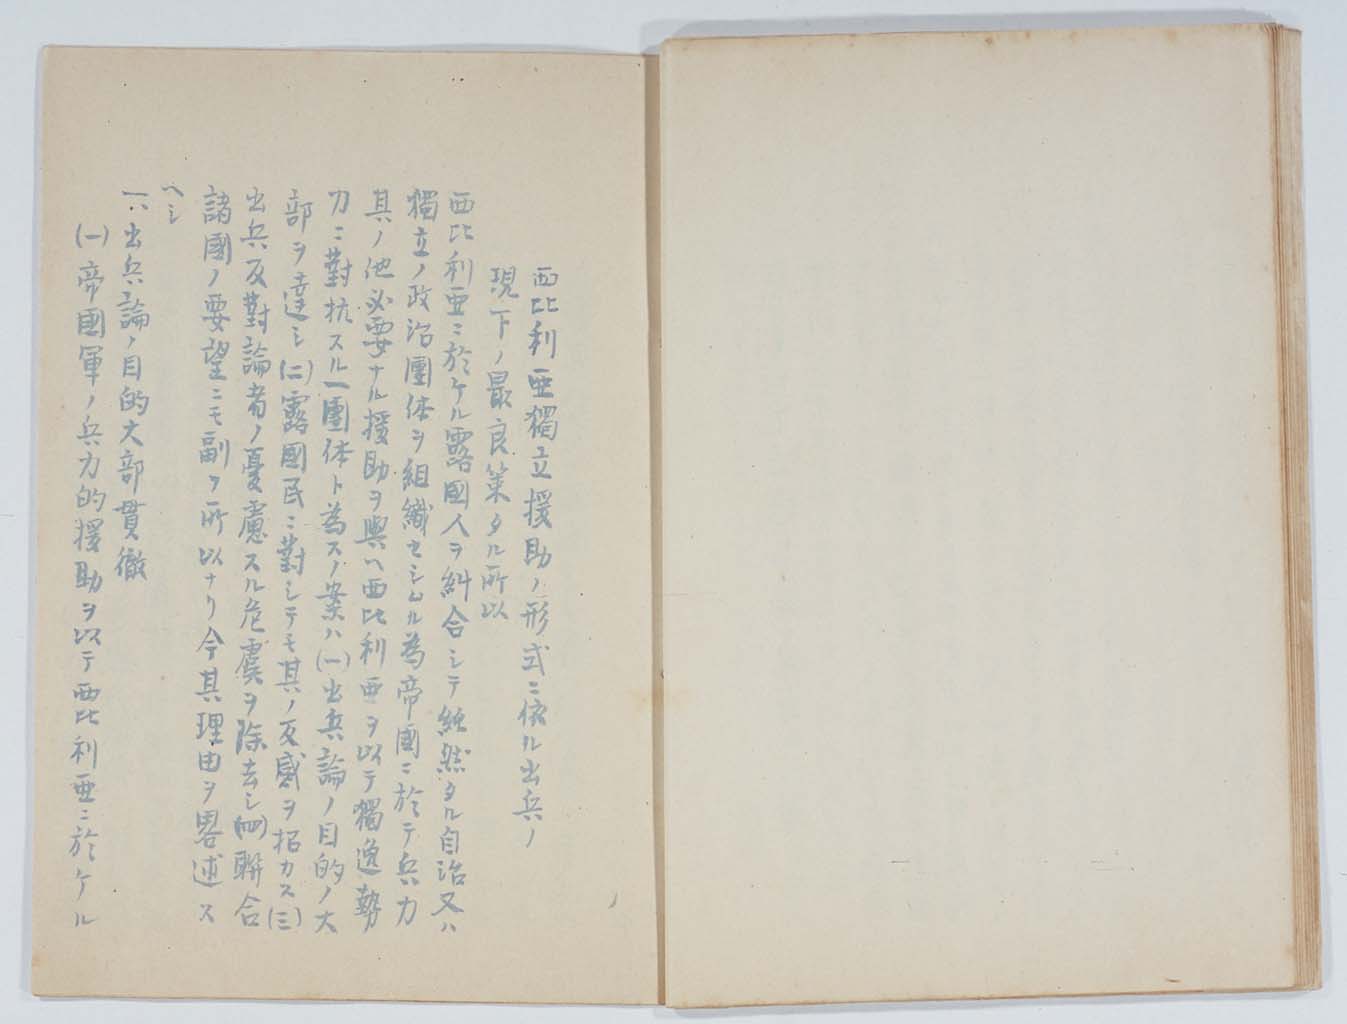 西比利亜獨立援助ノ形式ニ依ル出兵ノ
現下ノ最良策タル所以
西比利亜ニ於ケル露國人ヲ糾合シテ純然タル自治又ハ
獨立ノ政治團体ヲ組織セシムル為帝國ニ於テ兵力
其ノ他必要ナル援助ヲ與ハ西比利亜ヲ以テ獨逸勢
力ニ對抗スル一團体ト為スノ案ハ(一)出兵論ノ目的ノ大
部ヲ達シ(二)露國民ニ對シテモ其ノ反感ヲ招カス(三)
出兵反對論者ノ憂慮スル危虞ヲ除去シ(四)聯合
諸國ノ要望ニモ副フ所以ナリ今其理由ヲ畧述ス
ヘシ
一、出兵論ノ目的大部貫徹
(一)帝國軍ノ兵力的援助ヲ以テ西比利亜ニ於ケル